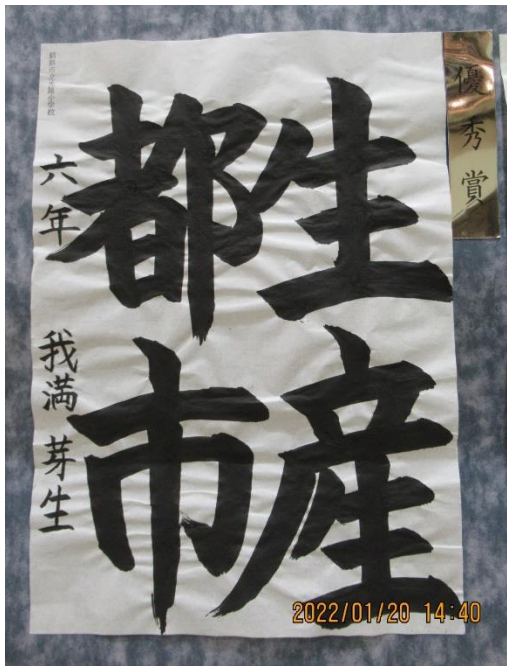 優秀賞
生産
都市
六年 我満 芽生
2022/01/20 14:40